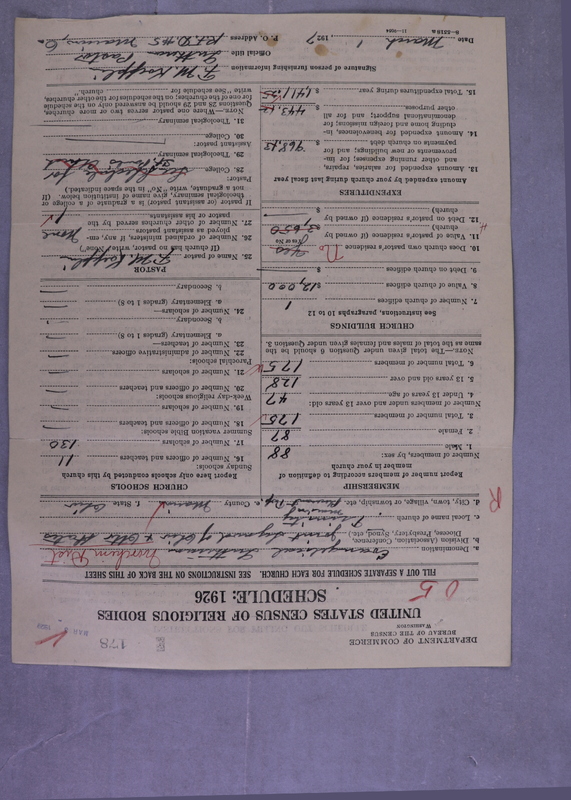 DEPARTMENT OF COMMERCE
BUREAU OF THE CENSUS
WASHINGTON
178
UNITED STATES CENSUS OF RELIGIOUS BODIES
SCHEDULE: 1926
FILL OUT A SEPARATE SCHEDULE FOR EACH CHURCH. SEE INSTRUCTIONS ON THE BACK OF THIS SHEET
a. Denomination Evangelical Lutheran
b. Division (Association, Conference, Diocese, Presbytery, Synod, etc.) Joint Synod of Ohio & Other States
c. Local name of church Trinity
d. City, town, village, or township, etc. County Marion State Ohio
MEMBERSHIP
Report number of members according to definition of member in your church
Number of members, by sex:
1. Male 88
2. Female 87
3. Total number of members 175
Number of members under and over 13 years old:
4. Under 13 years of age 47
5. 13 years old and over 128
6. Total number of members 175
NOTE.—The total given under Question 6 should be the same as the total of males and females given under Question 3.
CHURCH BUILDINGS
See instructions, paragraphs 10 to 12
7. Number of church edifices 1
8. Value of church edifices $12,000
9. Debt on church edifices $
10. Does church own pastor's residence Yes No
Yes or No
11. Value of pastor's residence (if owned by church) $
12. Debt on pastor's residence (if owned by church) $
EXPENDITURES
Amount expended by your church during last fiscal year
13. Amount expended for salaries, repairs, and other running expenses; for improvements or new buildings; and for payments on church debt $ 968.13
14. Amount expended for benevolences, including home and foreign missions; for denominational support; and for all other purposes $
15. Total expenditures during year $
CHURCH SCHOOLS
Report here only schools conducted by this church
Sunday schools:
16. Number of officers and teachers 11
17. Number of scholars 130
Summer vacation Bible schools:
18. Number of officers and teachers
19. Number of scholars
Week-day religious schools:
20. Number of officers and teachers
21. Number of scholars
Parochial schools:
22. Number of administrative officers
23. Number of teachers—
a. Elementary (grades 1 to 8)
b. Secondary
24. Number of scholars—
a. Elementary (grades 1 to 8)
b. Secondary
PASTOR
25. Name of pastor
(If church has no pastor, write "None")
26. Number of ordained ministers, if any, employed as assistant pastors None
27. Number of other churches served by the pastor or his assistants
If pastor (or assistant pastor) is a graduate of a college or theological seminary, give name of institution below. (If not a graduate, write "No" in the space indicated.)
Pastor:
28. College
29. Theological seminary
Assistant pastor:
30. College
31. Theological seminary
NOTE.—Where one pastor serves two or more churches, Questions 25 and 29 should be answered only on the schedule for one of the churches; on the schedule for the other churches, write "See schedule for church."
Signature of person furnishing information
Official title Lutheran Pastor
P. O. Address R.F.D. #5 Marion, O.
Date March 1, 1927
8-5318a
11-9064